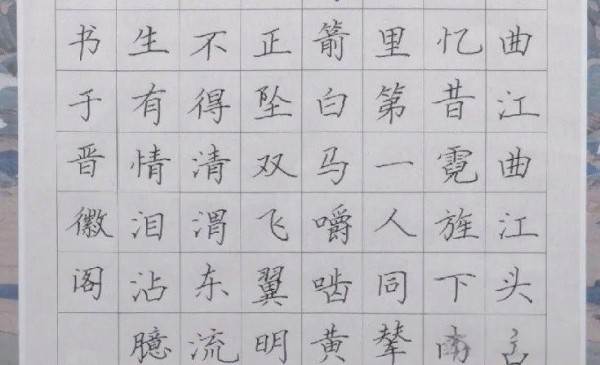 曲江曲江头宫
忆昔霓旌下南
里第一人同辇
箭白马嚼啮黄
正坠双飞翼明
不得清渭东流
生有情泪沾臆
书于晋徽阁